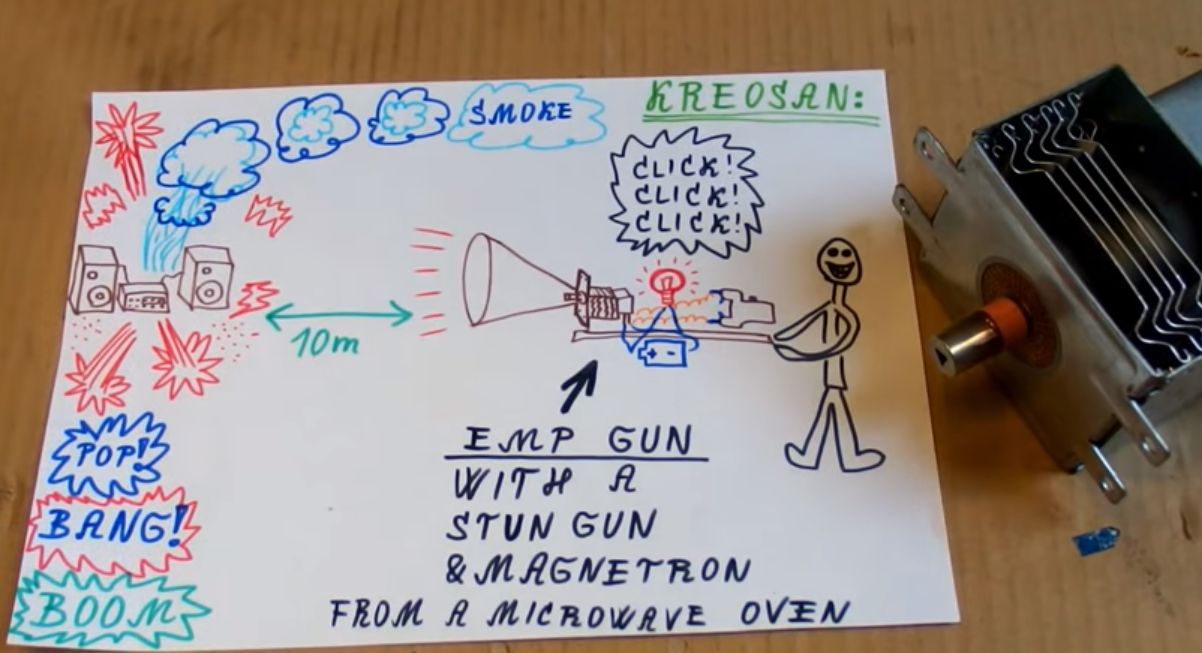 SMOKE
KREOSAN:
CLICK!
CLICK!
CLICK!
10m
+ -
POP!
BANG!
BOOM
EMP GUN
WITH A
STUN GUN
& MAGNETRON
FROM A MICROWAVE OVEN